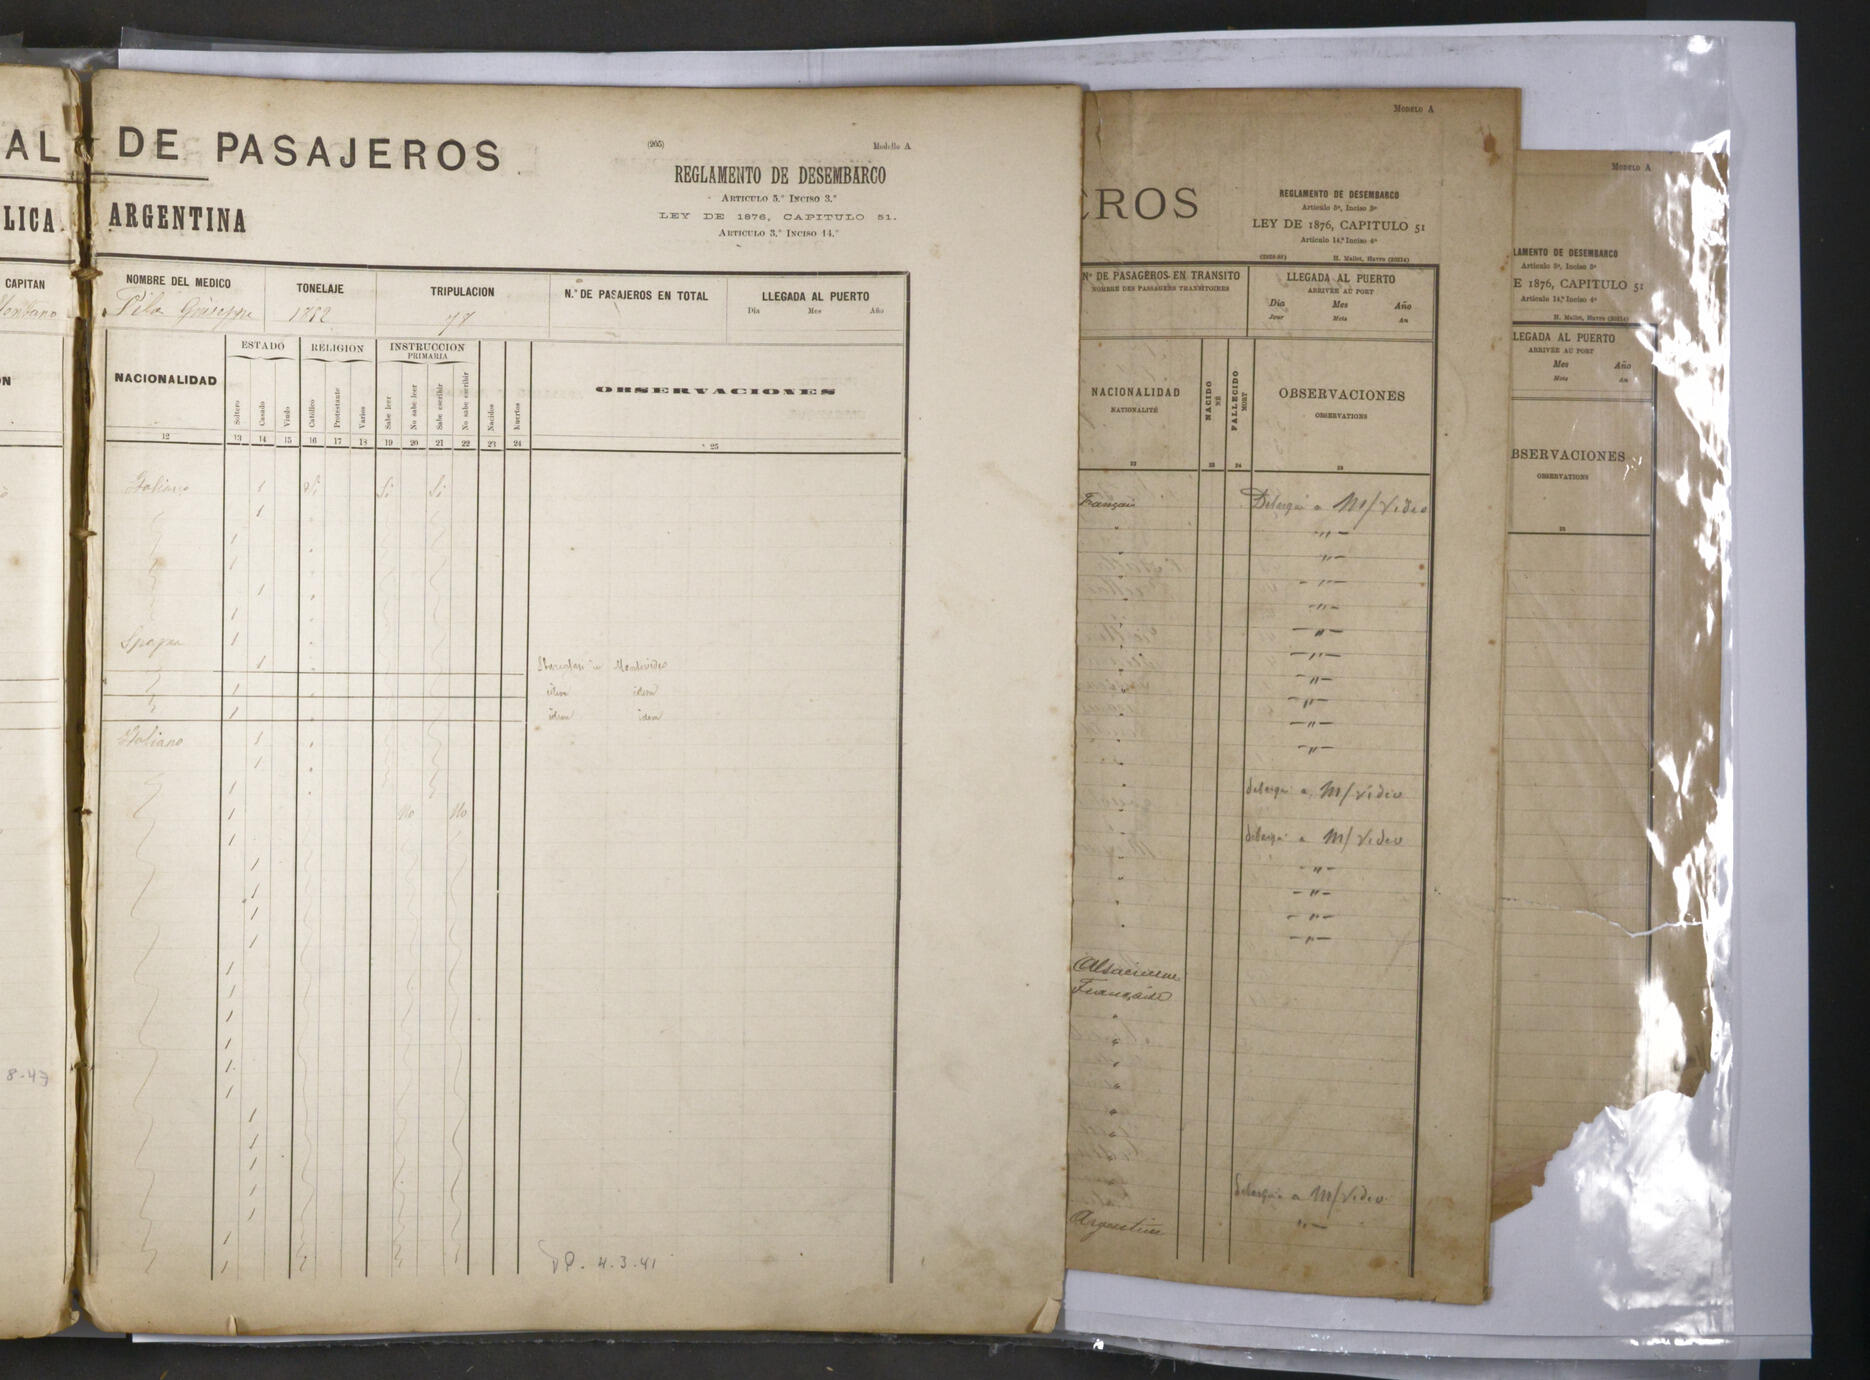 AL DE PASAJEROS
LICA ARGENTINA
(205)
Modello A
REGLAMENTO DE DESEMBARCO
ARTICULO 5.° INCISO 3.°
LEY DE 1876, CAPITULO 51.
ARTICULO 3.° INCISO 14.°
CAPITAN
NOMBRE DEL MEDICO
TONELAJE
TRIPULACION
N.° DE PASAJEROS EN TOTAL
LLEGADA AL PUERTO
Dia Mes Año
Pila Giuseppe
77
N
NACIONALIDAD
ESTADO
RELIGION
INSTRUCCION
PRIMARIA
OBSERVACIONES
Soltero
Casado
Viudo
Católico
Protestante
Varios
Sabe leer
No sabe leer
Sabe escribir
No sabe escribir
Nacidos
Muertos
12 13 14 15 16 17 18 19 20 21 22 23 24 25
Italiano 1 Si Si Si
Spagna
Montevideo
idem idem
idem idem
Italiano
No No
8-47
4.3.41
MODELO A
EROS
REGLAMENTO DE DESEMBARCO
Articulo 5º, Inciso 3º
LEY DE 1876, CAPITULO 51
Articulo 14.º Inciso 4º
H. Mallet, Havre (20214)
Nº DE PASAGEROS EN TRANSITO
NOMBRE DES PASSAGERS TRANSITOIRES
LLEGADA AL PUERTO
ARRIVÉE AU PORT
Dia Mes Año
Jour Mois An
NACIONALIDAD
NATIONALITÉ
NACIDO
NÉ
FALLECIDO
MORT
OBSERVACIONES
OBSERVATIONS
22 23 24 25
Français
a M/video
a M/video
a M/video
Alsacienne
Française
a M/video
Argentine
MODELO A
LAMENTO DE DESEMBARCO
Articulo 5º, Inciso 3º
E 1876, CAPITULO 51
Articulo 14.º Inciso 4º
H. Mallet, Havre (20214)
LEGADA AL PUERTO
ARRIVÉE AU PORT
Mes Año
Mois An
BSERVACIONES
OBSERVATIONS
25